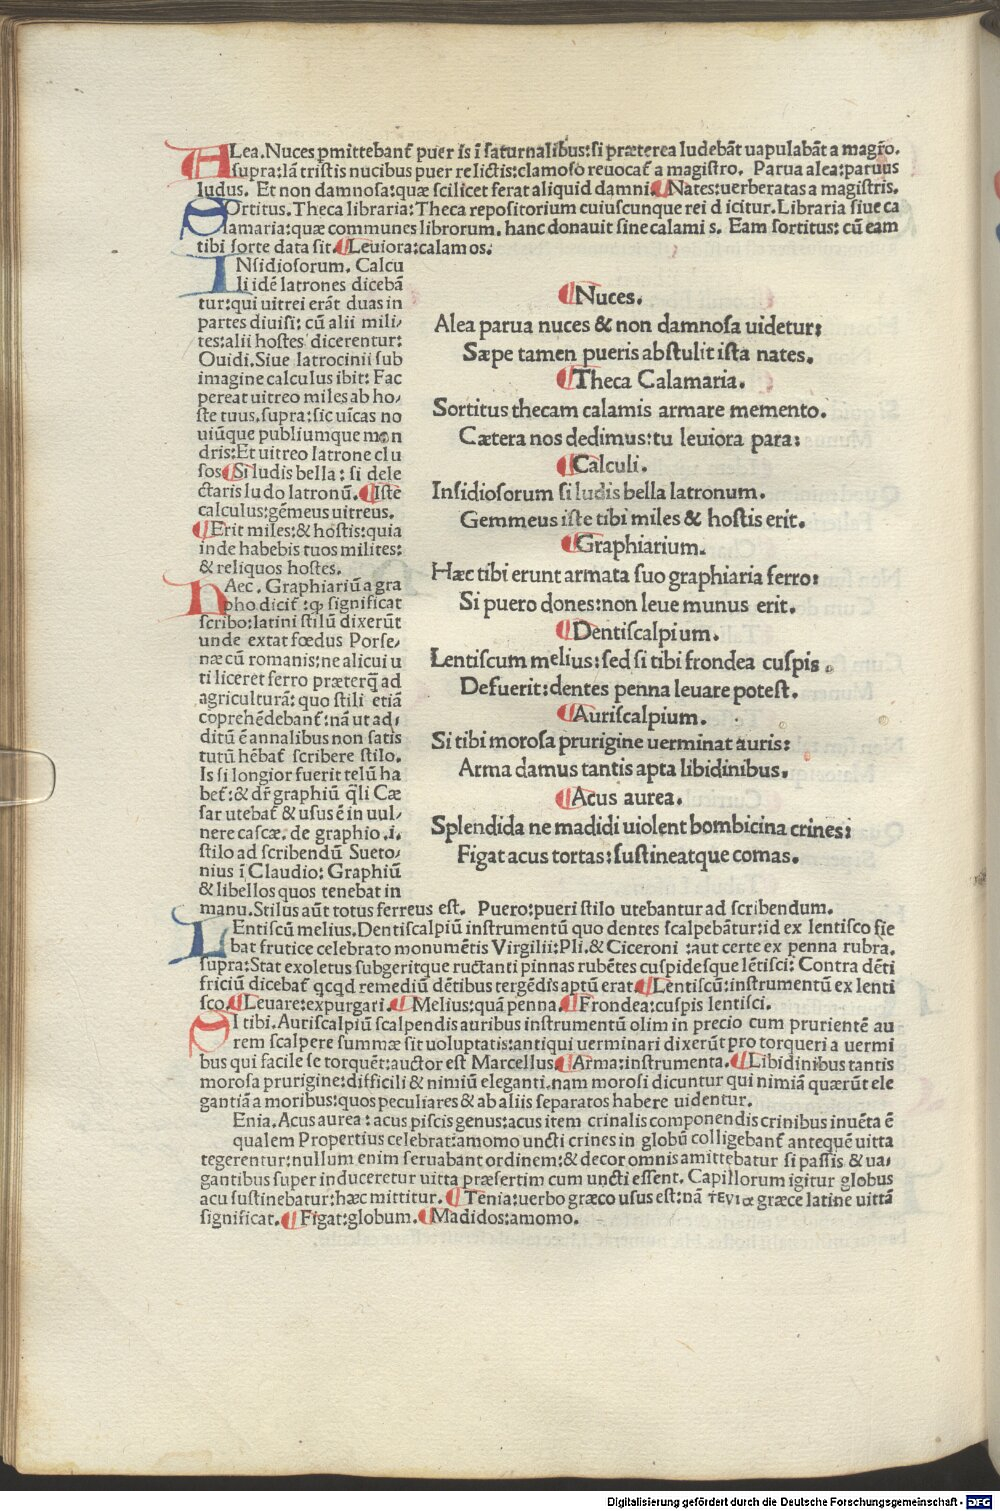 ALea. Nuces pmittebant̃ puer is ĩ saturnalibus: si præterea ludebãt uapulabãt a magr̃o.
supra: iã tristis nucibus puer relictis: clamoso reuocat̃ a magistro. Parua alea: paruus
ludus. Et non damnosa: quæ scilicet ferat aliquid damni. ¶Nates: uerberatas a magistris.
SOrtitus. Theca libraria: Theca repositorium cuiuscunque rei d icitur. Libraria siue ca
lamaria: quæ communes librorum. hanc donauit sine calami s. Eam sortitus: cũ eam
tibi sorte data sit. ¶Leuiora: calamos.
INsidiosorum. Calcu
li idẽ latrones dicebã
tur: qui uitrei erãt duas in
partes diuisi: cũ alii mili/
tes: alii hostes dicerentur:
Ouidi. Siue latrocinii sub
imagine calculus ibit: Fac
pereat uitreo miles ab ho/
ste tuus. supra: sic uĩcas no
uiũque publiumque mon
dris: Et uitreo latrone clu
sos ¶Si ludis bella: si dele
ctaris ludo latronũ. ¶Iste
calculus: gẽmeus uitreus.
¶Erit miles: & hostis: quia
inde habebis tuos milites:
& reliquos hostes.
HAec. Graphiariũ a gra
pho dicit̃: ꝙ significat
scribo: latini stilũ dixerũt
unde extat fœdus Porse/
næ cũ romanis: ne alicui u
ti liceret ferro præterq̃ ad
agriculturã: quo stili etiã
coprehẽdebant̃: nã ut ad/
ditũ ẽ annalibus non satis
tutũ hẽbat̃ scribere stilo.
Is si longior fuerit telũ ha
bet̃: & dr̃ graphiũ q̃li Cæ
sar utebat̃ & usus ẽ in uul/
nere cascæ. de graphio .i.
stilo ad scribendũ Sueto/
nius ĩ Claudio: Graphiũ
& libellos quos tenebat in
manu. Stilus aũt totus ferreus est. Puero: pueri stilo utebantur ad scribendum.
¶Nuces.
Alea parua nuces & non damnosa uidetur:
Sæpe tamen pueris abstulit ista nates.
¶Theca Calamaria.
Sortitus thecam calamis armare memento.
Cætera nos dedimus: tu leuiora para:
¶Calculi.
Insidiosorum si ludis bella latronum.
Gemmeus iste tibi miles & hostis erit.
¶Graphiarium.
Hæc tibi erunt armata suo graphiaria ferro:
Si puero dones: non leue munus erit.
¶Dentiscalpium.
Lentiscum melius: sed si tibi frondea cuspis.
Defuerit: dentes penna leuare potest.
¶Auriscalpium.
Si tibi morosa prurigine uerminat auris:
Arma damus tantis apta libidinibus.
¶Acus aurea.
Splendida ne madidi uiolent bombicina crines:
Figat acus tortas: sustineatque comas.
LEntiscũ melius. Dentiscalpiũ instrumentũ quo dentes scalpebãtur: id ex lentisco fie
bat frutice celebrato monumẽtis Virgilii: Pli. & Ciceroni : aut certe ex penna rubra.
supra: Stat exoletus subgeritque ructanti pinnas rubẽtes cuspidesque lẽtisci: Contra dẽti
friciũ dicebat̃ qcqd remediũ dẽtibus tergẽdis aptũ erat. ¶Lentiscũ: instrumentũ ex lenti
sco. ¶Leuare: expurgari. ¶Melius: quã penna. ¶Frondea: cuspis lentisci.
SI tibi. Auriscalpiũ scalpendis auribus instrumentũ olim in precio cum prurientẽ au
rem scalpere summæ sit uoluptatis: antiqui uerminari dixerũt pro torqueri a uermi
bus qui facile se torquẽt: auctor est Marcellus ¶Arma: instrumenta. ¶Libidinibus tantis
morosa prurigine: difficili & nimiũ eleganti. nam morosi dicuntur qui nimiã quærũt ele
gantiã a moribus: quos peculiares & ab aliis separatos habere uidentur.
Enia. Acus aurea: acus piscis genus: acus item crinalis componendis crinibus inuẽta ẽ
qualem Propertius celebrat: amomo uncti crines in globũ colligebant̃ antequẽ uitta
tegerentur: nullum enim seruabant ordinem: & decor omnis amittebatur si passis & ua/
gantibus super induceretur uitta præsertim cum uncti essent. Capillorum igitur globus
acu sustinebatur: hæc mittitur. ¶Tenia: uerbo græco usus est: nã τενια græce latine uittã
significat. ¶Figat: globum. ¶Madidos: amomo.
Digitalisierung gefördert durch die Deutsche Forschungsgemeinschaft - DFG